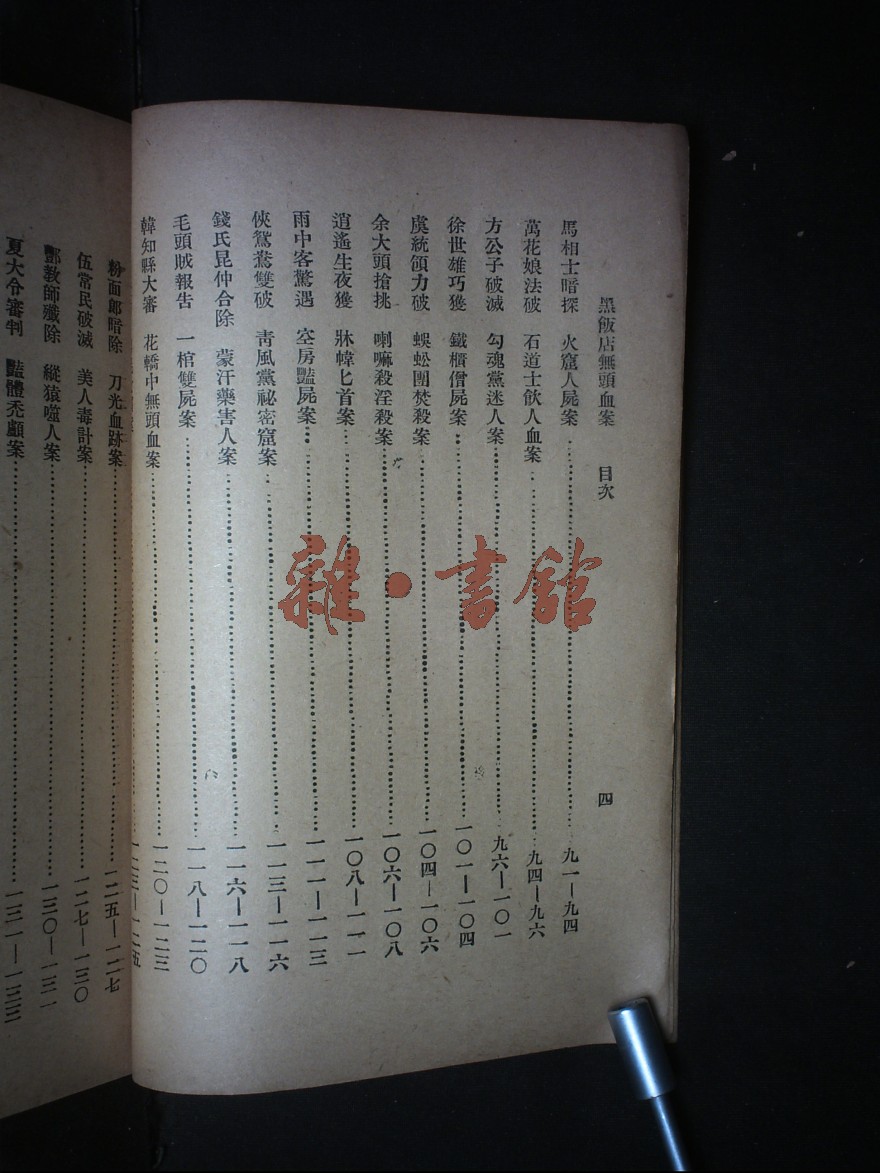 黑飯店無頭血案 目次 四
馬相士暗探 火窟人屍案 九一—九四
萬花娘法破 石道士飲人血案 九四—九六
方公子破滅 勾魂黨迷人案 九六—一〇一
徐世雄巧獲 鐵櫃僧屍案 一〇一—一〇四
虞統領力破 蜈蚣團焚殺案 一〇四—一〇六
余大頭搶挑 喇嘛殺淫殺案 一〇六—一〇八
逍遙生夜獲 牀幃匕首案 一〇八—一一一
雨中客驚遇 空房豔屍案 一一一—一一三
俠鴛鴦雙破 靑風黨祕密窟案 一一三—一一六
錢氏昆仲合除 蒙汗藥害人案 一一六—一一八
毛頭賊報告 一棺雙屍案 一一八—一二〇
韓知縣大審 花轎中無頭血案 一二〇—一二三
一二三—一二五
粉面郎暗除 刀光血跡案 一二五—一二七
伍常民破滅 美人毒計案 一二七—一三〇
酆教師殲除 縱猿噬人案 一三〇—一三一
夏大令審判 豔體禿顱案 一三一—一三三
雜·書館